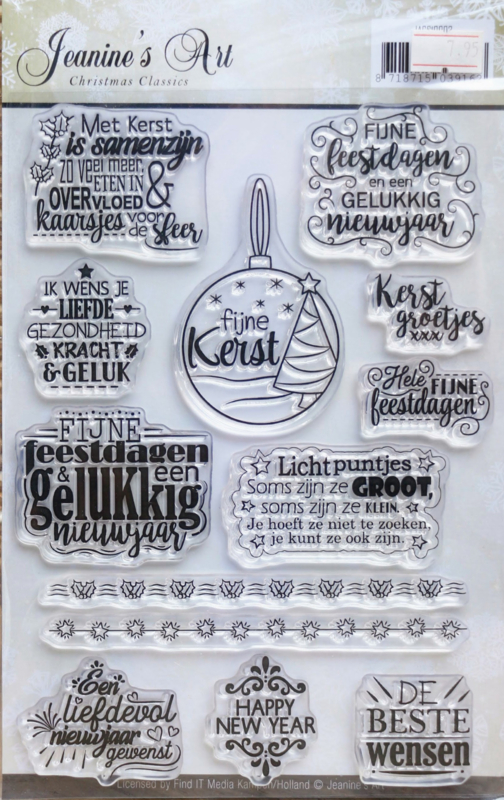 Jeanine's Art
Christmas Classics
7.95
8 718715 03916
Met Kerst
is samenzijn
zo veel meer,
ETEN IN
OVERVLOED &
kaarsjes voor
de sfeer
FIJNE
feestdagen
en een
GELUKKIG
nieuwjaar
IK WENS JE
LIEFDE
GEZONDHEID
KRACHT
& GELUK
fijne
Kerst
Kerst
groetjes
xxx
Hele FIJNE
feestdagen
FIJNE
feestdagen
& een
gelukkig
nieuwjaar
Lichtpuntjes
Soms zijn ze GROOT,
soms zijn ze KLEIN.
Je hoeft ze niet te zoeken,
je kunt ze ook zijn.
Een
liefdevol
nieuwjaar
gewenst
HAPPY
NEW YEAR
DE
BESTE
wensen
Licensed by Find IT Media Kampen/Holland © Jeanine's Art